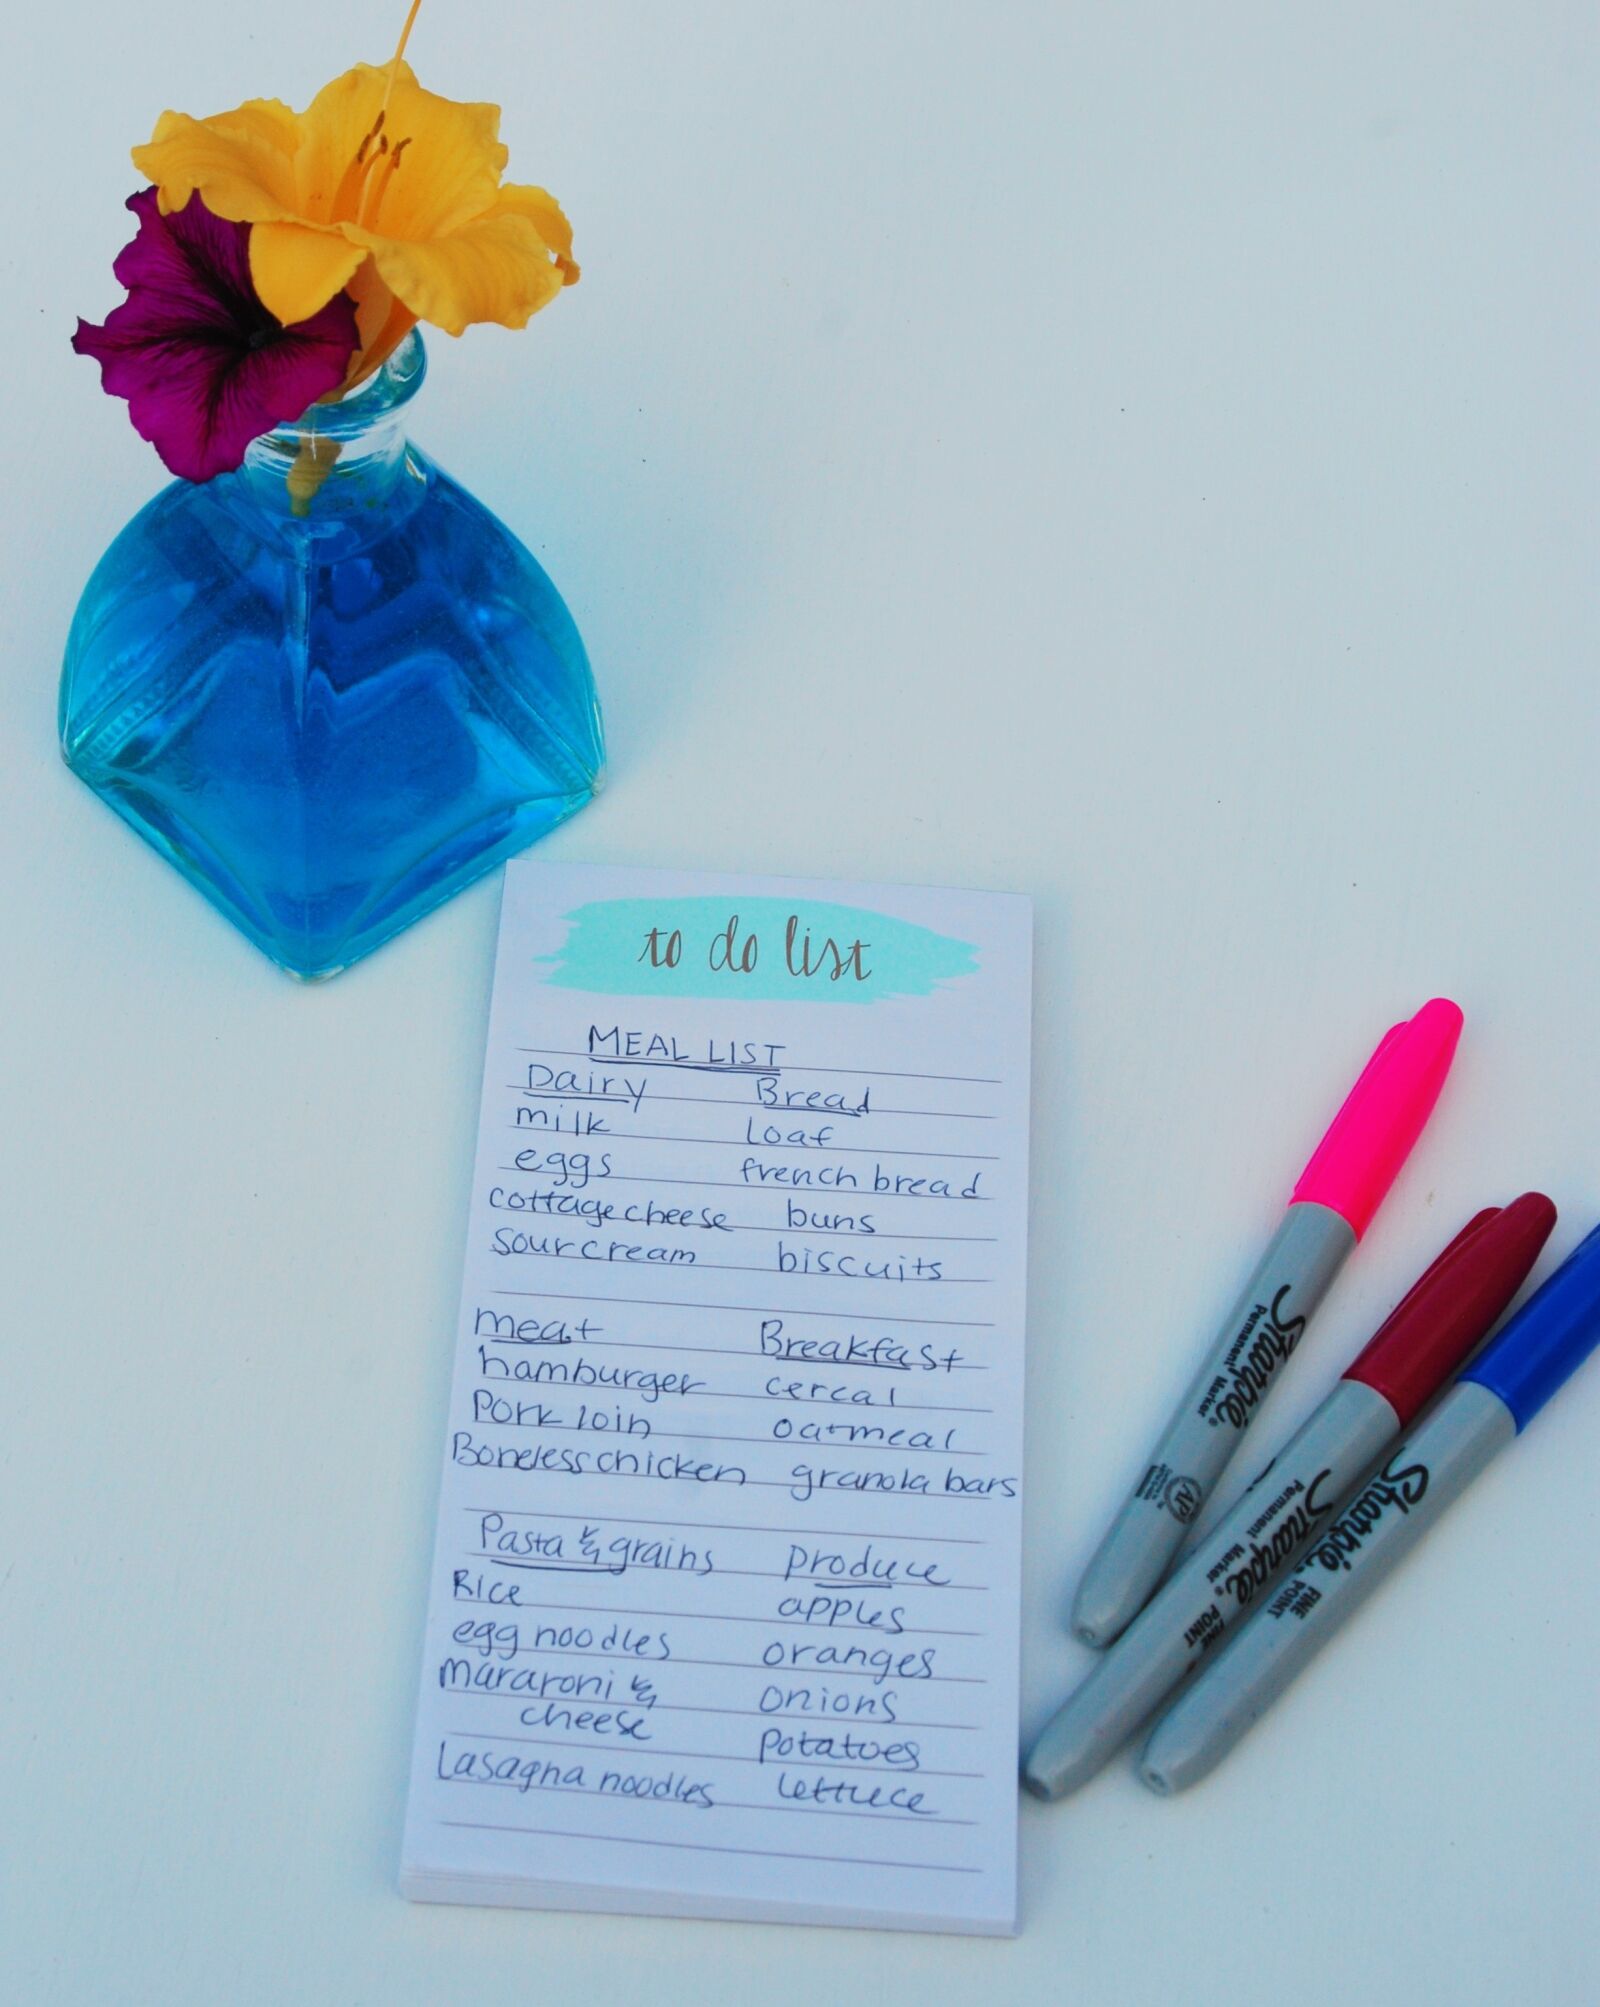 to do list
MEAL LIST
Dairy
milk
eggs
cottage cheese
sour cream
Bread
Loaf
french bread
buns
biscuits
meat
hamburger
Pork loin
Boneless chicken
Breakfast
cereal
oatmeal
granola bars
Pasta & grains
Rice
egg noodles
mararoni &
cheese
Lasagna noodles
produce
apples
oranges
onions
potatoes
lettuce
Sharpie
Permanent Marker®
AP
Sharpie
Permanent Marker®
FINE
POINT
Sharpie
FINE
POINT